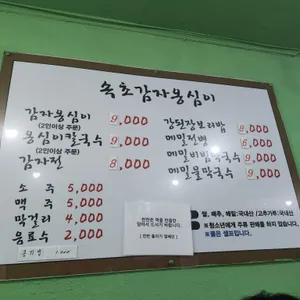 속초감자옹심이
감자옹심이 9,000
(2인이상 주문)
옹심이칼국수 9,000
(2인이상 주문)
감자전 8,000
소주 5,000
맥주 5,000
막걸리 4,000
음료수 2,000
공기밥 1,000
강된장보리밥 8,000
메밀전병 6,000
메밀비빔막국수 9,000
메밀물막국수 9,000
쌀, 배추, 메밀:국내산 / 고추가루:국내산
※청소년에게 주류 판매를 하지 않습니다.
※물은 셀프입니다.